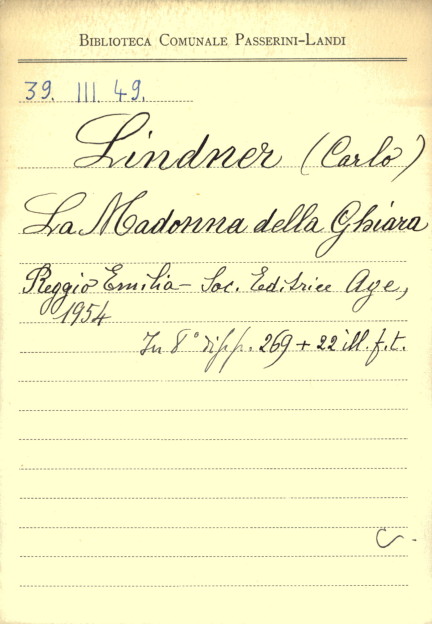 BIBLIOTECA COMUNALE PASSERINI-LANDI
39. III. 49.
Lindner (Carlo)
La Madonna della Ghiara
Reggio Emilia - Soc. Editrice Age,
1954
In 8° di pp. 269 + 22 ill. f. t.
C.